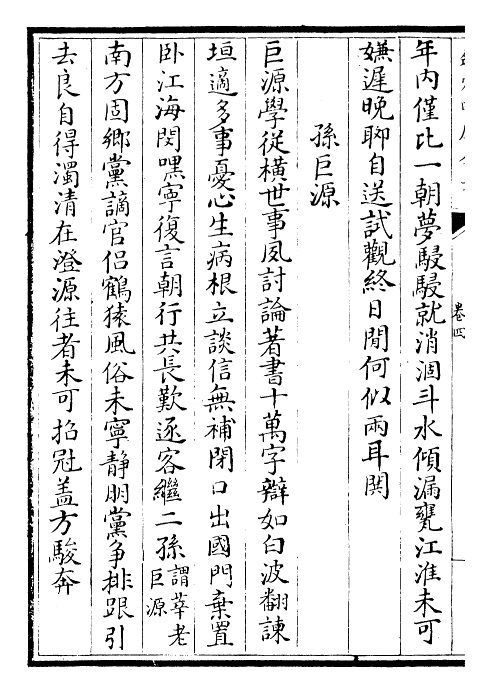 年内僅比一朝夢駸駸就消涸斗水傾漏甕江淮未可
嫌遲晚聊自送試觀終日閒何似兩耳閧
孫巨源
巨源學從橫世事夙討論著書十萬字辯如白波翻諫
垣適多事憂心生病根立談信無補閉口出國門棄置
卧江海閔嘿寧復言朝行共長歎逐客繼二孫謂莘老巨源
南方固鄉黨謫官侣鶴猿風俗未寧靜朋黨争排跟引
去良自得濁清在澄源往者未可招冠盖方駿奔
卷四